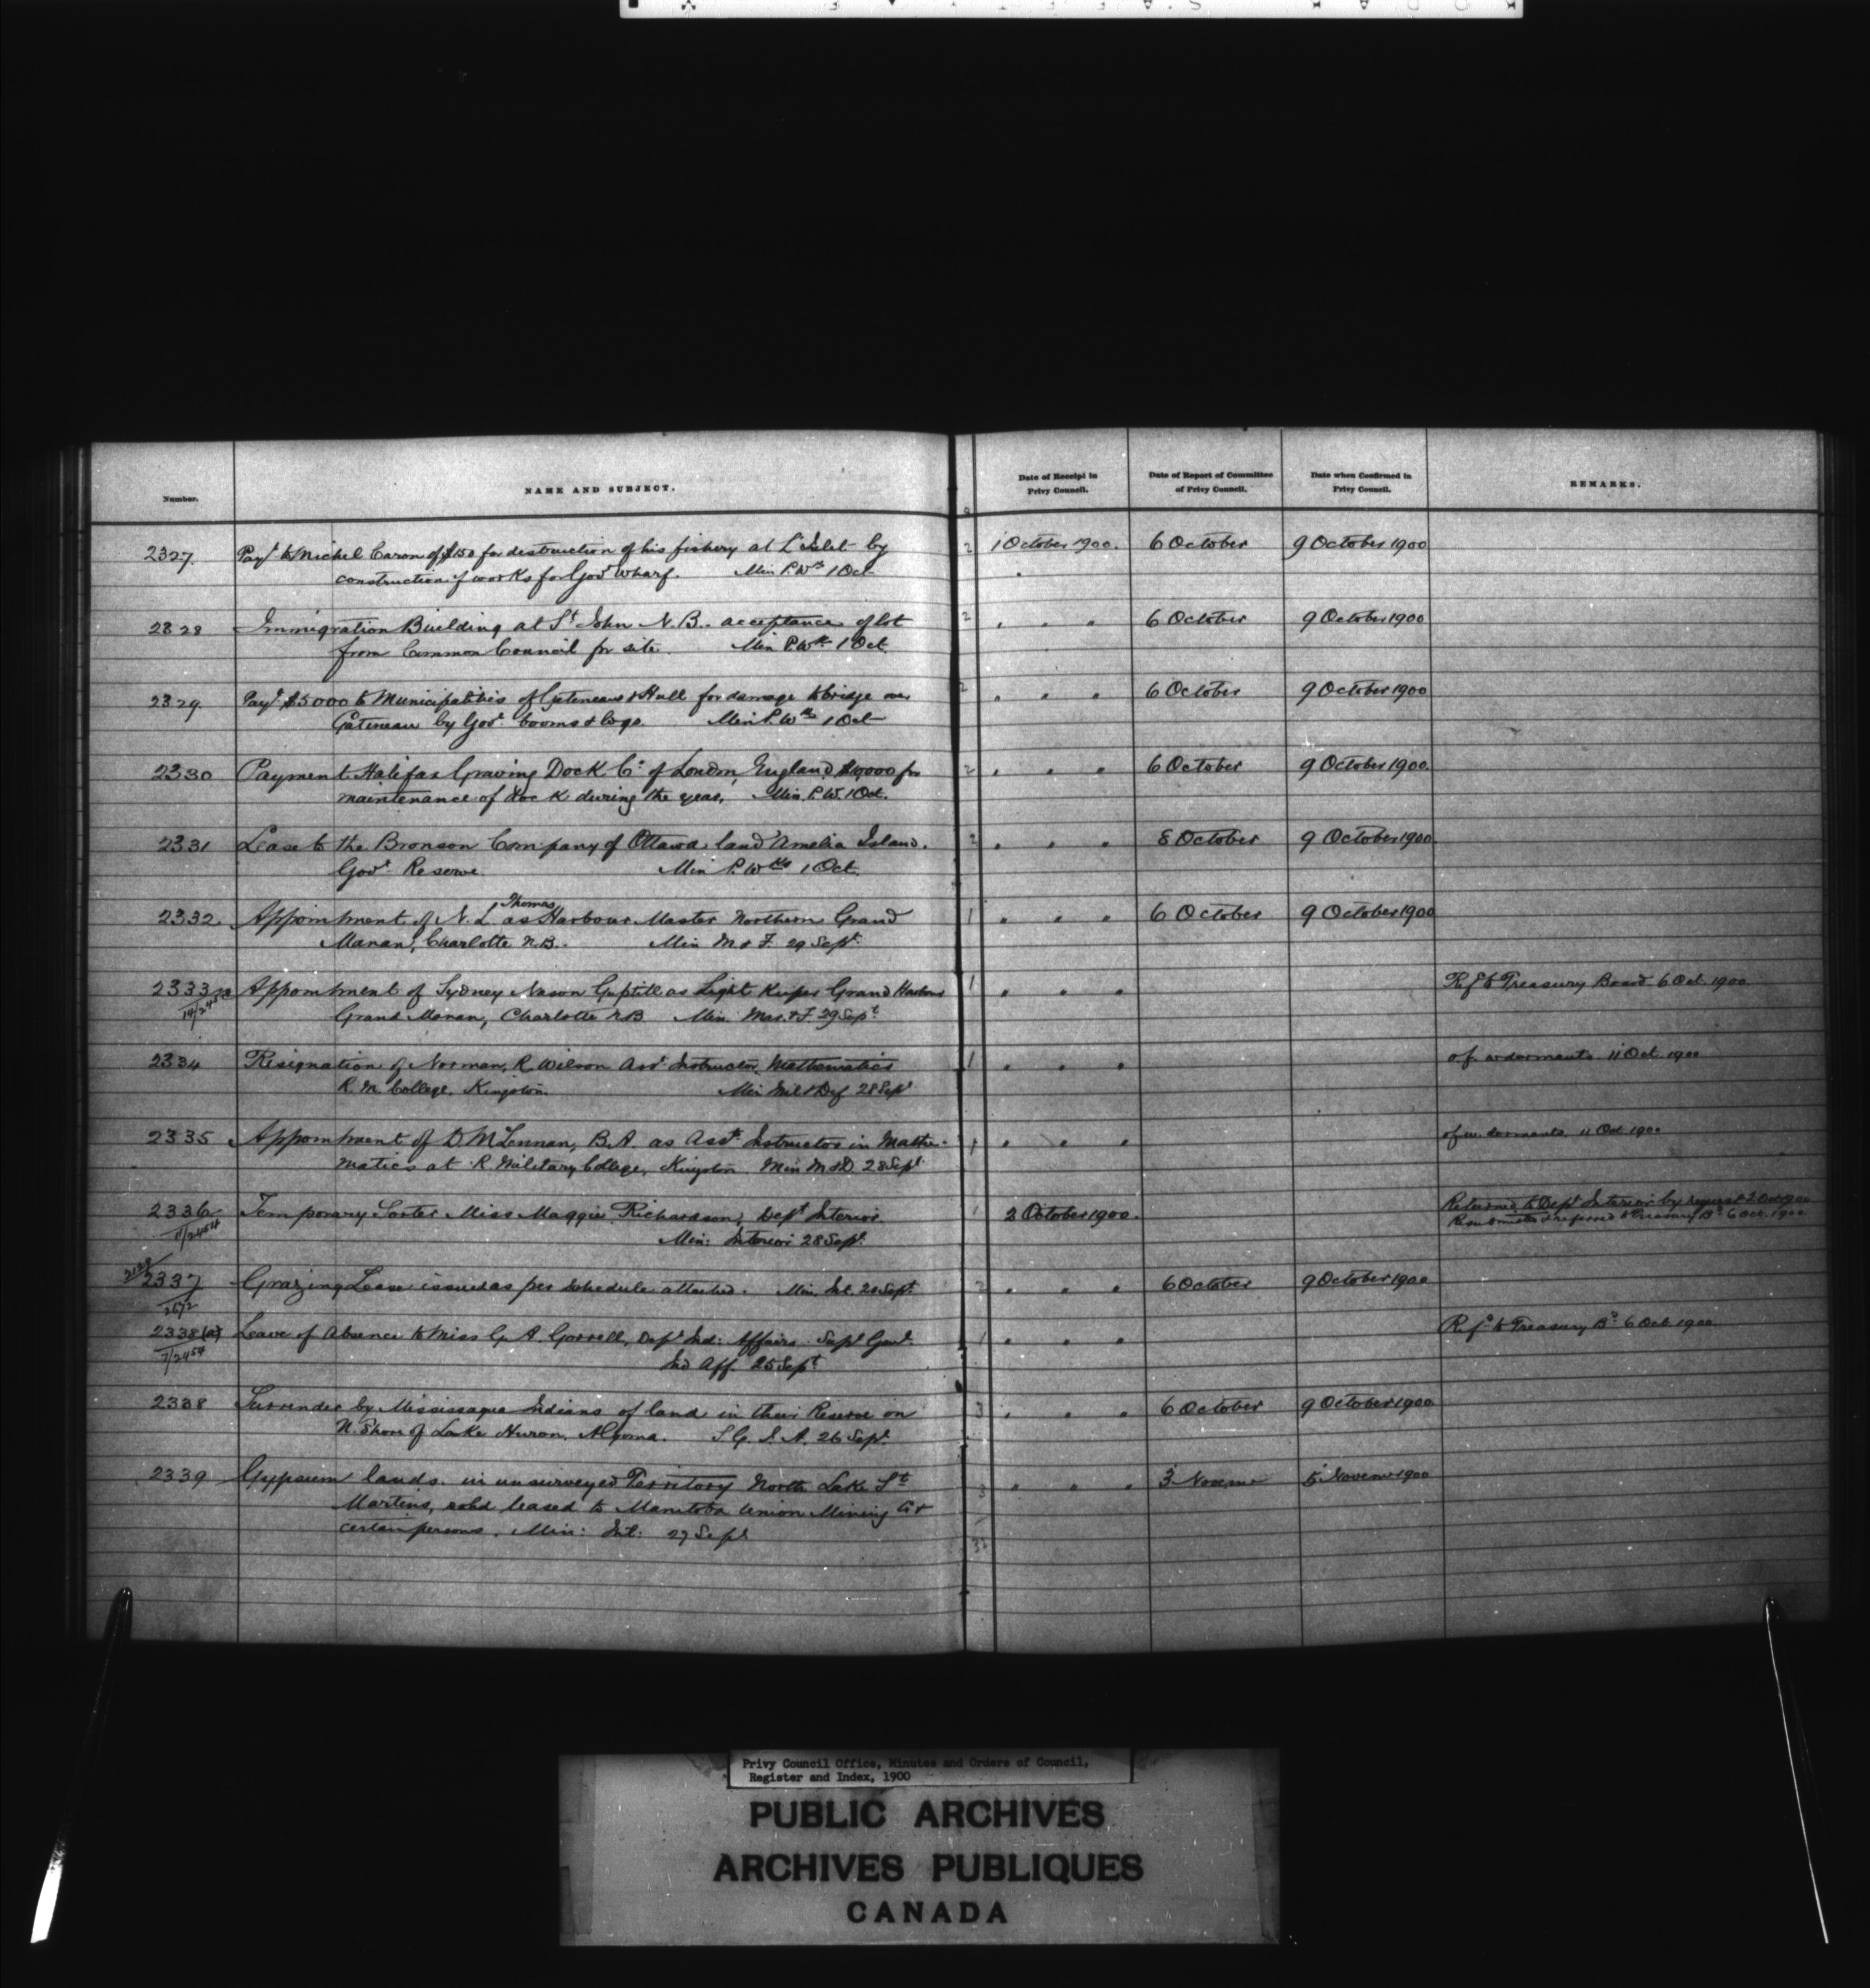 Number.
NAME AND SUBJECT.
Date of Receipt in Privy Council.
Date of Report of Committee of Privy Council.
Date when Confirmed in Privy Council.
REMARKS.
2327. Payt to Michel Caron of $150 for destruction of his fishery at L'Islet by 2 1 October 1900. 6 October 9 October 1900
construction of works for Govt Wharf. Min P. Wks 1 Oct
2328 Immigration Building at St John N.B. acceptance of lot 2 " " " 6 October 9 October 1900
from Common Council for site. Min P. Wks 1 Oct.
2329 Payt $5000 to Municipalities of Gatineau & Hull for damage to bridge over 2 " " " 6 October 9 October 1900
Gatineau by Govt booms & logs. Min P. Wks 1 Oct
2330 Payment Halifax Graving Dock Co of London, England for 2 " " " 6 October 9 October 1900.
maintenance of dock during the year, Min. P. W. 1 Oct.
2331 Lease to the Bronson Company of Ottawa land Amelia Island. 2 " " " 8 October 9 October 1900
Govt Reserve. Min P. Wks 1 Oct.
2332. Appointment of N. L. Thomas as Harbour Master Northern Grand 1 " " " 6 October 9 October 1900
Manan, Charlotte N.B. Min M & F 29 Sept.
2333 Appointment of Sydney Nason Guptill as Light Keeper Grand Harbour 1 " " " Refd to Treasury Board 6 Oct 1900
Grand Manan, Charlotte N B Min. Mar. & F. 29 Sept.
2334 Resignation of Norman R. Wilson Asst Instructor Mathematics 1 " " " 11 Oct. 1900
R. M. College, Kingston. Min Mil & Def 28 Sept
2335 Appointment of D. McLennan, B.A. as Asst Instructor in Mathe- 1 " " " 11 Oct 1900
matics at R. Military College, Kingston. Min M & D 28 Sept.
2336 Temporary Sorter Miss Maggie Richardson, Dept Interior 1 2 October 1900. Returned to Dept Interior by request 2 Oct 1900
11/2454 Resubmitted & referred to Treasury Bd 6 Oct. 1900
Min: Interior 28 Sept.
2337 Grazing Lease issued as per schedule attached. Min. Int. 28 Sept. 2 " " " 6 October 9 October 1900
2338(a) Leave of Absence to Miss G. A. Gorrell, Dept Ind: Affairs. Supt Genl. 1 " " " Refd to Treasury Bd 6 Oct 1900
7/2454 Ind Aff. 25 Sept.
2338 Surrender by Mississagua Indians of land in their Reserve on 3 " " " 6 October 9 October 1900
N. Shore of Lake Huron, Algoma. S. G. I. A. 26 Sept.
2339 Gypsum lands in unsurveyed Territory North Lake St 3 " " " 3 Novemr 5 Novemr 1900
Martins, leased to Manitoba Union Mining Co &
certain persons. Min: Int: 27 Sept
Privy Council Office, Minutes and Orders of Council,
Register and Index, 1900
PUBLIC ARCHIVES
ARCHIVES PUBLIQUES
CANADA